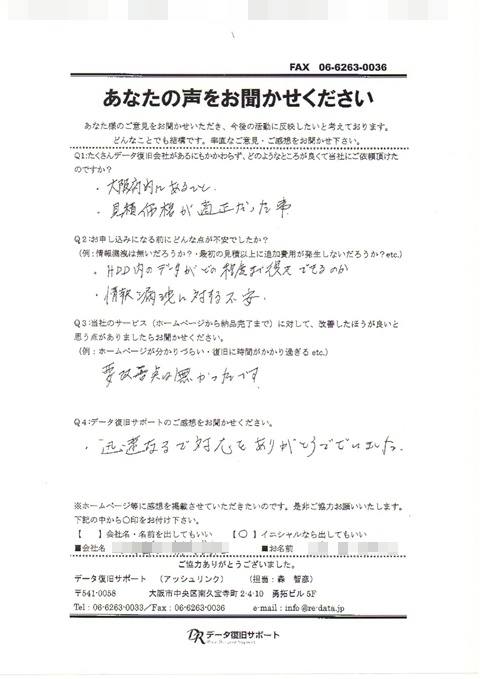 FAX 06-6263-0036
あなたの声をお聞かせください
あなた様のご意見をお聞かせいただき、今後の活動に反映したいと考えております。
どんなことでも結構です。率直なご意見・ご感想をお聞かせ下さい。
Q1:たくさんデータ復旧会社があるにもかかわらず、どのようなところが良くて当社にご依頼頂けた
のですか？
・大阪府内にあること
・見積価格が適正だった事
Q2:お申し込みになる前にどんな点が不安でしたか？
（例:情報漏洩は無いだろうか？・最初の見積以上に追加費用が発生しないだろうか？etc.）
・HDD内のデータがどの程度まで復元できるのか
・情報漏洩に対する不安
Q3:当社のサービス（ホームページから納品完了まで）に対して、改善したほうが良いと
思う点がありましたらお聞かせください。
（例：ホームページが分かりづらい・復旧に時間がかかり過ぎる etc.）
要改善点は無かったです
Q4:データ復旧サポートのご感想をお聞かせください。
・迅速なるご対応をありがとうございました。
※ホームページ等に感想を掲載させていただきたいのです。是非ご協力お願いいたします。
下記の中から〇印をお付け下さい。
【 】会社名・名前を出してもいい 【〇】イニシャルなら出してもいい
■会社名 ■お名前
ご協力ありがとうございました。
データ復旧サポート （アッシュリンク） （担当：森 智彦）
〒541-0058 大阪市中央区南久宝寺町 2-4-10 勇拓ビル 5F
Tel：06-6263-0033／Fax：06-6263-0036 e-mail：info@re-data.jp
DR データ復旧サポート